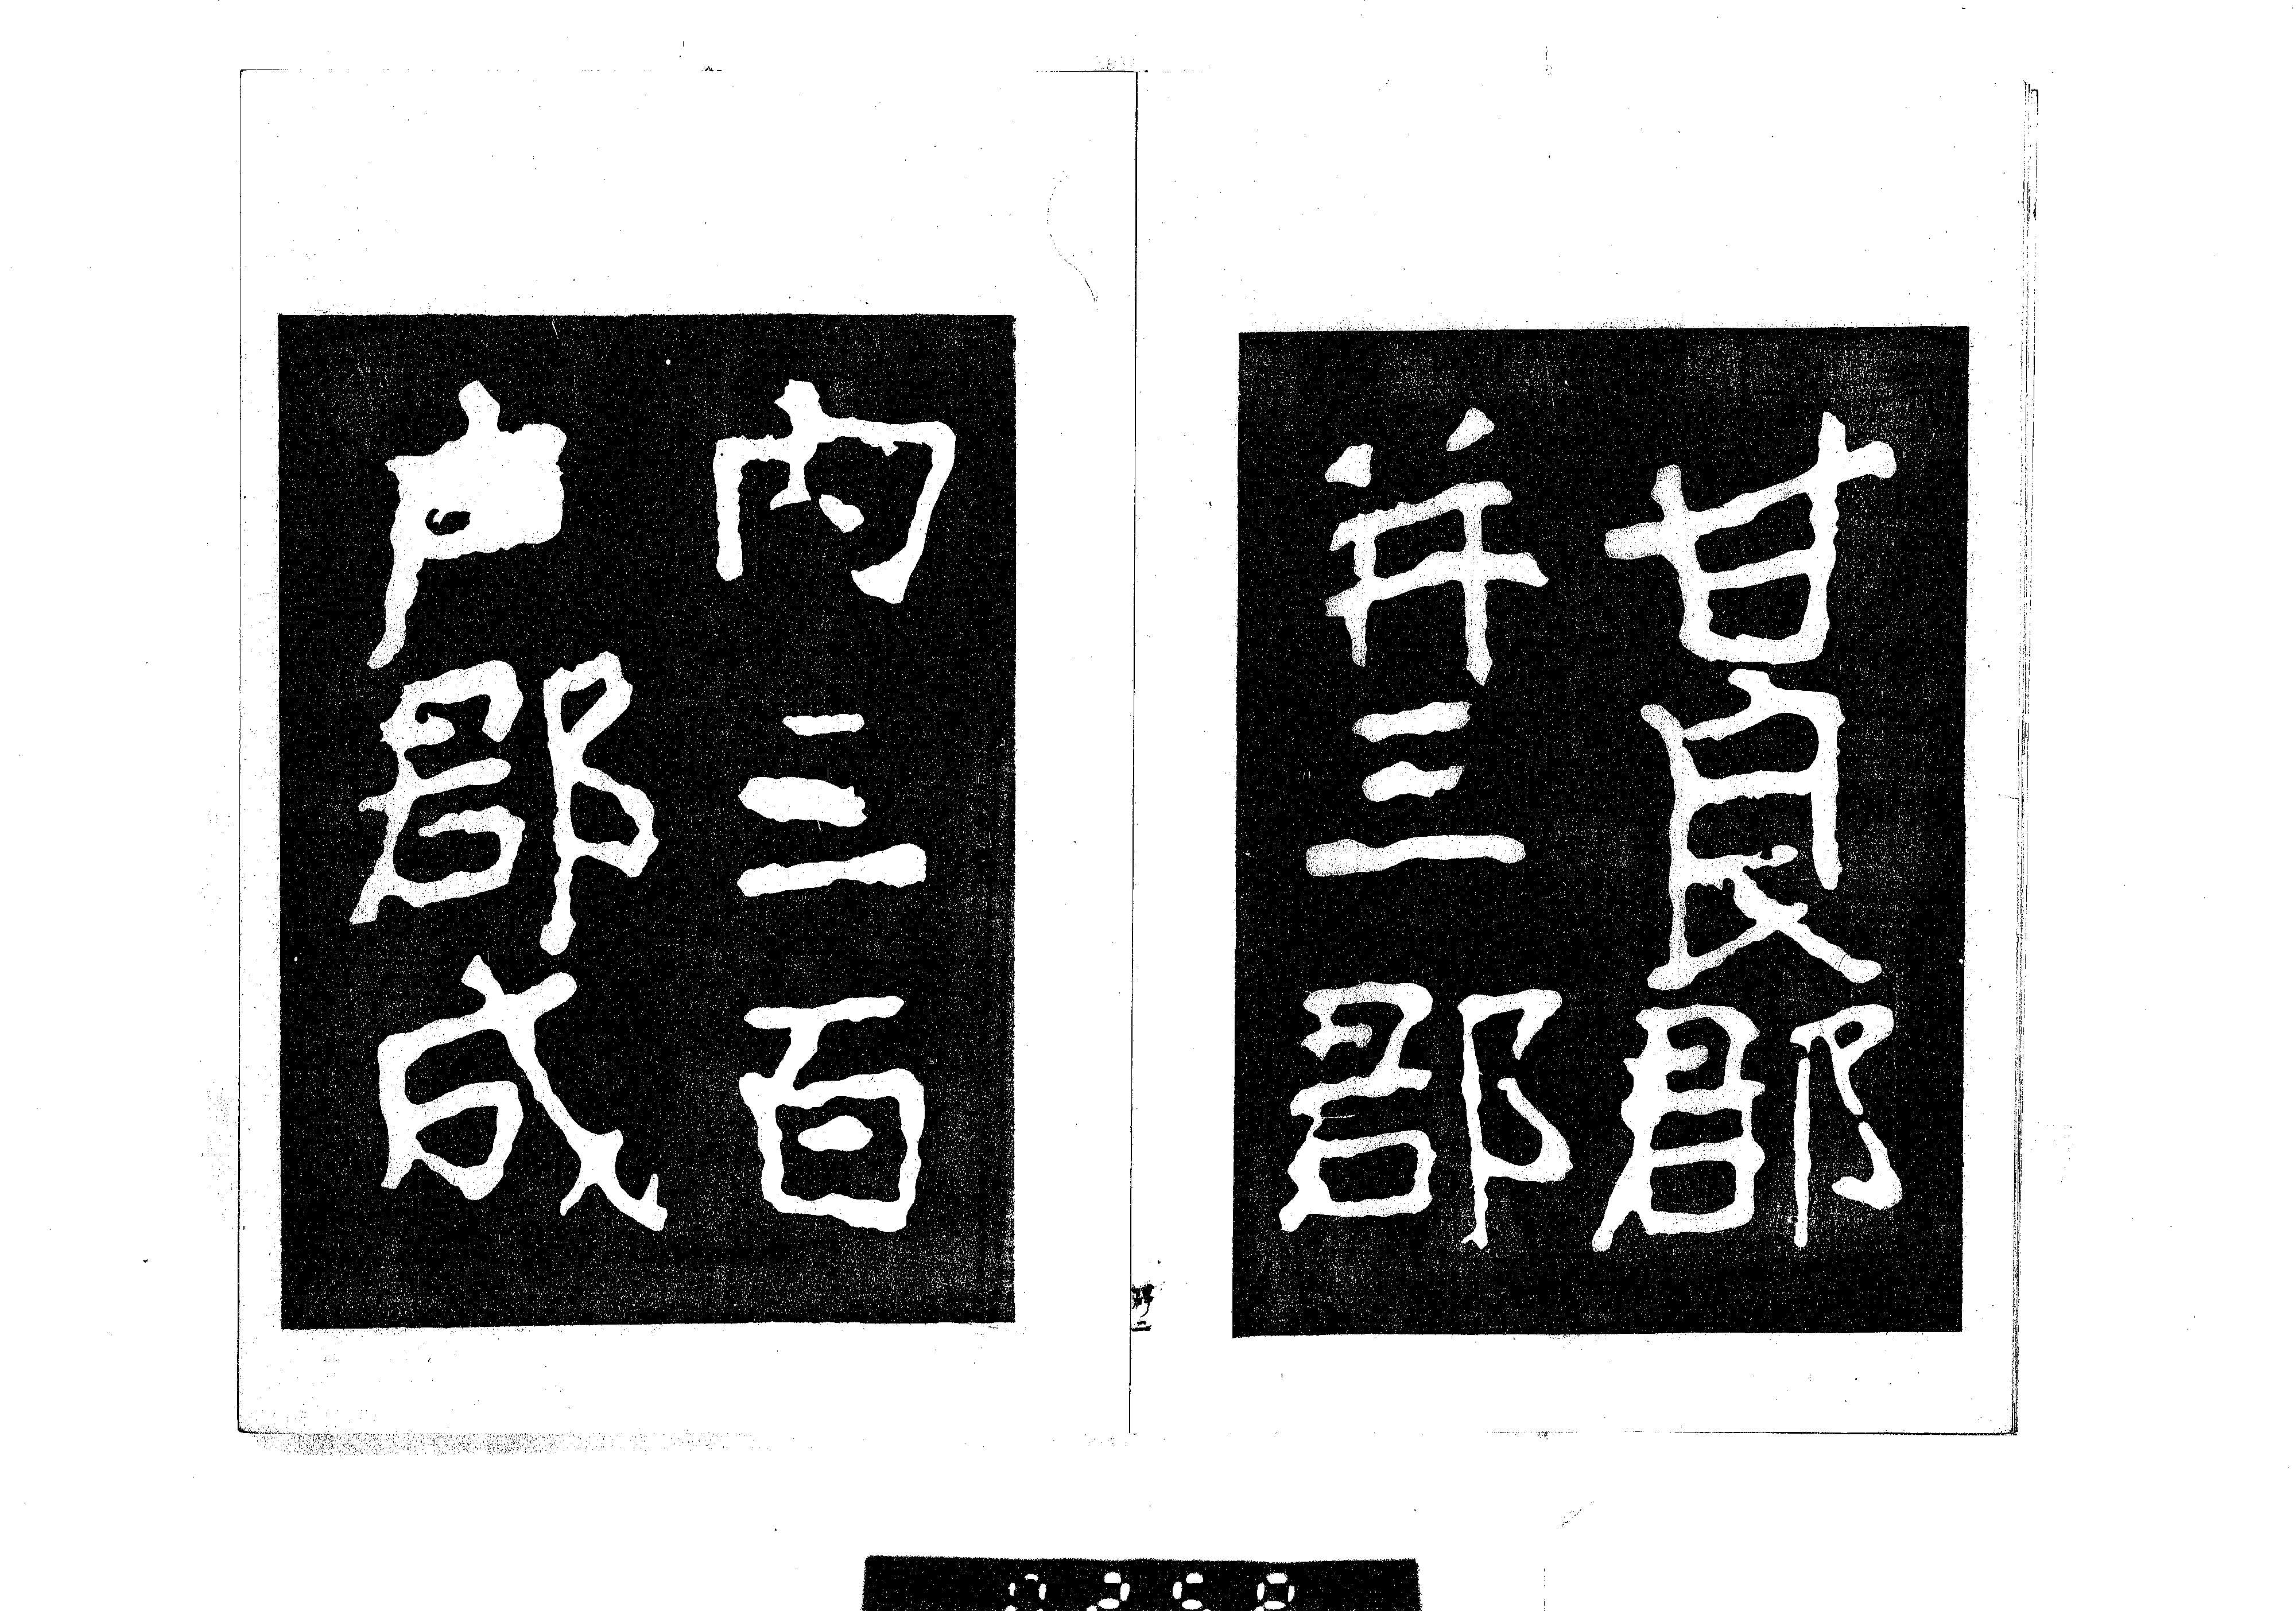 甘良郡
并三郡
内三百
戸郡成